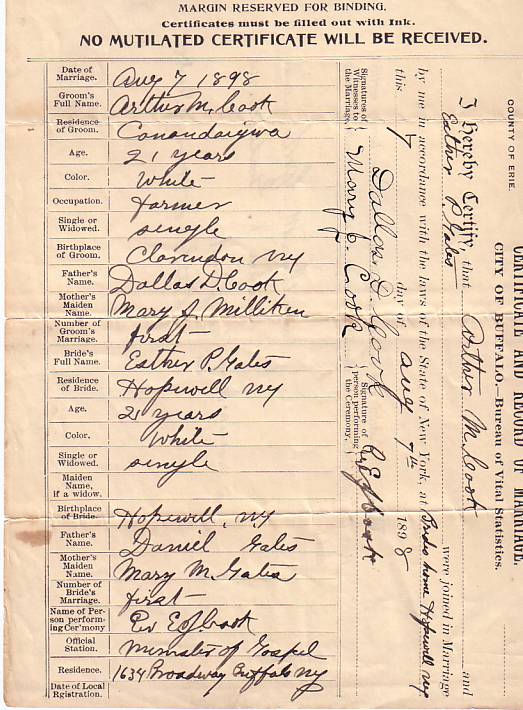 MARGIN RESERVED FOR BINDING.
Certificates must be filled out with Ink.
NO MUTILATED CERTIFICATE WILL BE RECEIVED.
Date of Marriage. Aug 7 1898
Groom's Full Name. Arthur M. Cook
Residence of Groom. Canandaigwa
Age. 21 years
Color. White
Occupation. Farmer
Single or Widowed. single
Birthplace of Groom. Clarendon NY
Father's Name. Dallas D. Cook
Mother's Maiden Name. Mary J. Milliken
Number of Groom's Marriage. first
Bride's Full Name. Esther P. Gates
Residence of Bride. Hopewell NY
Age. 21 years
Color. White
Single or Widowed. single
Maiden Name, if a widow.
Birthplace of Bride. Hopewell, NY
Father's Name. Daniel Gates
Mother's Maiden Name. Mary M. Gates
Number of Bride's Marriage. first
Name of Person performing Cer'mony Ev E J Cook
Official Station. Minister of Gospel
Residence. 1634 Broadway Buffalo NY
Date of Local Rgistration.
COUNTY OF ERIE.
CERTIFICATE AND RECORD OF MARRIAGE.
CITY OF BUFFALO.—Bureau of Vital Statistics.
I Hereby Certify, that Arthur M. Cook and
Esther P. Gates were joined in Marriage
by me in accordance with the laws of the State of New York, at Brides home Hopewell NY
this 7 day of Aug 7th 1898
Signatures of Witnesses to the Marriage, Dallas D. Cook
Mary J. Cook
Signature of person performing the Ceremony, Ev E J Cook